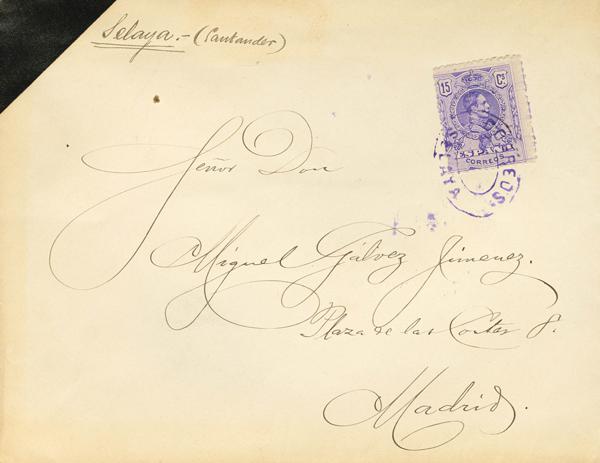 Selaya.- (Santander)
15 Cs
CORREOS
CORREOS
SELAYA
Señor Don
Miguel Gálvez Jimenez.
Plaza de las Cortes 8.
Madrid.